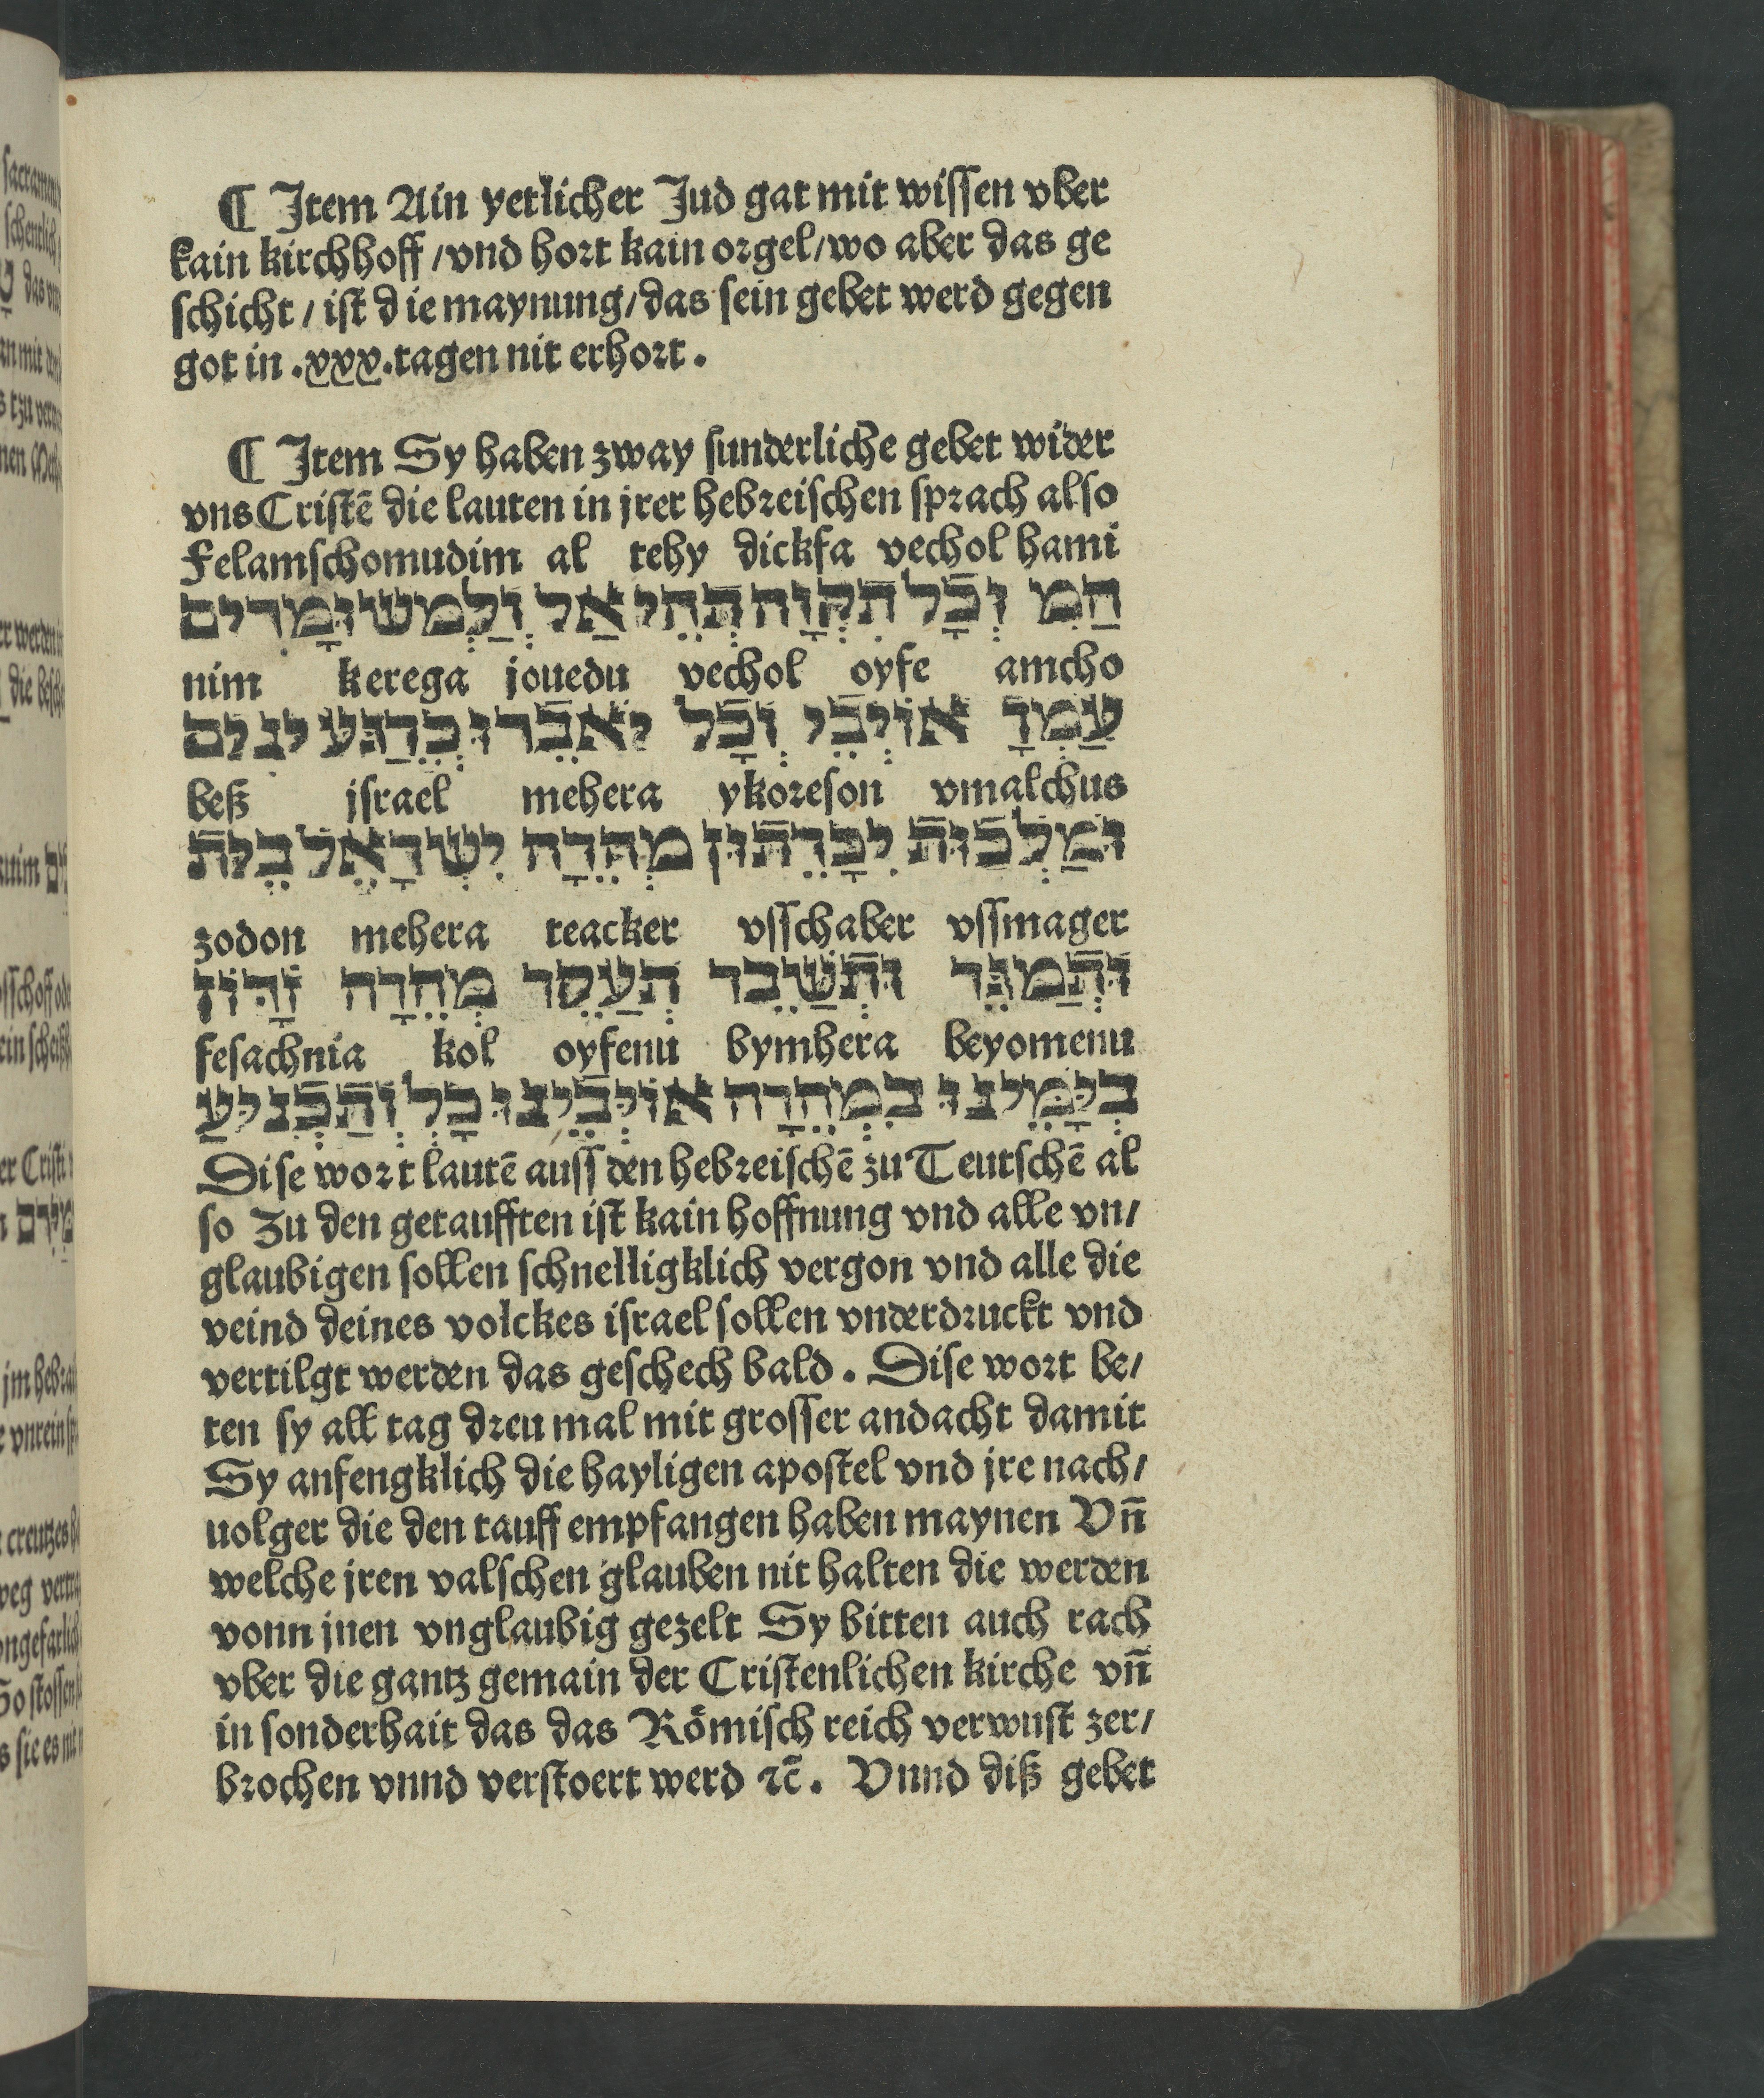 ¶ Item Ain yetlicher Jud gat mit wissen vber
kain kirchhoff / vnd hort kain orgel / wo aber das ge
schicht / ist die maynung / das sein gebet werd gegen
got in .xxx. tagen nit erhort.
¶ Item Sy haben zway sunderliche gebet wider
vns Cristē die lauten in jrer hebreischen sprach also
Felamschomudim al tehy dickfa vechol hami
וְלַמְשׁוּמָדִים אַל תְּהִי תִקְוָה וְכָל הַמִ
nim kerega jouedu vechol oyfe amcho
ינִים כְּרֶגַע יֹאבֵדוּ וְכָל אוֹיְבֵי עַמְךָ
beß jsrael mehera ykoreson vmalchus
בֵּית יִשְׂרָאֵל מְהֵרָה יִכָּרֵתוּן וּמַלְכוּת
zodon mehera teacker vsschaber vssmager
זָדוֹן מְהֵרָה תְעַקֵר וּתְשַׁבֵּר וּתְמַגֵּר
fesachnia kol oyfenu bymhera beyomenu
וְתַכְנִיעַ כָּל אוֹיְבֵינוּ בִּמְהֵרָה בְיָמֵינוּ
Dise wort lautē auss den hebreischē zu Teutschē al
so Zu den getaufften ist kain hoffnung vnd alle vn/
glaubigen sollen schnelligklich vergon vnd alle die
veind deines volckes israel sollen vnderdruckt vnd
vertilgt werden das geschech bald. Dise wort be/
ten sy all tag dreu mal mit grosser andacht damit
Sy anfengklich die hayligen apostel vnd jre nach/
uolger die den tauff empfangen haben maynen Vn̄
welche jren valschen glauben nit halten die werden
vonn jnen vnglaubig gezelt Sy bitten auch rach
vber die gantz gemain der Cristenlichen kirche vn̄
in sonderhait das das Römisch reich verwust zer/
brochen vnnd verstoert werd ꝛc̄. Vnnd diß gebet